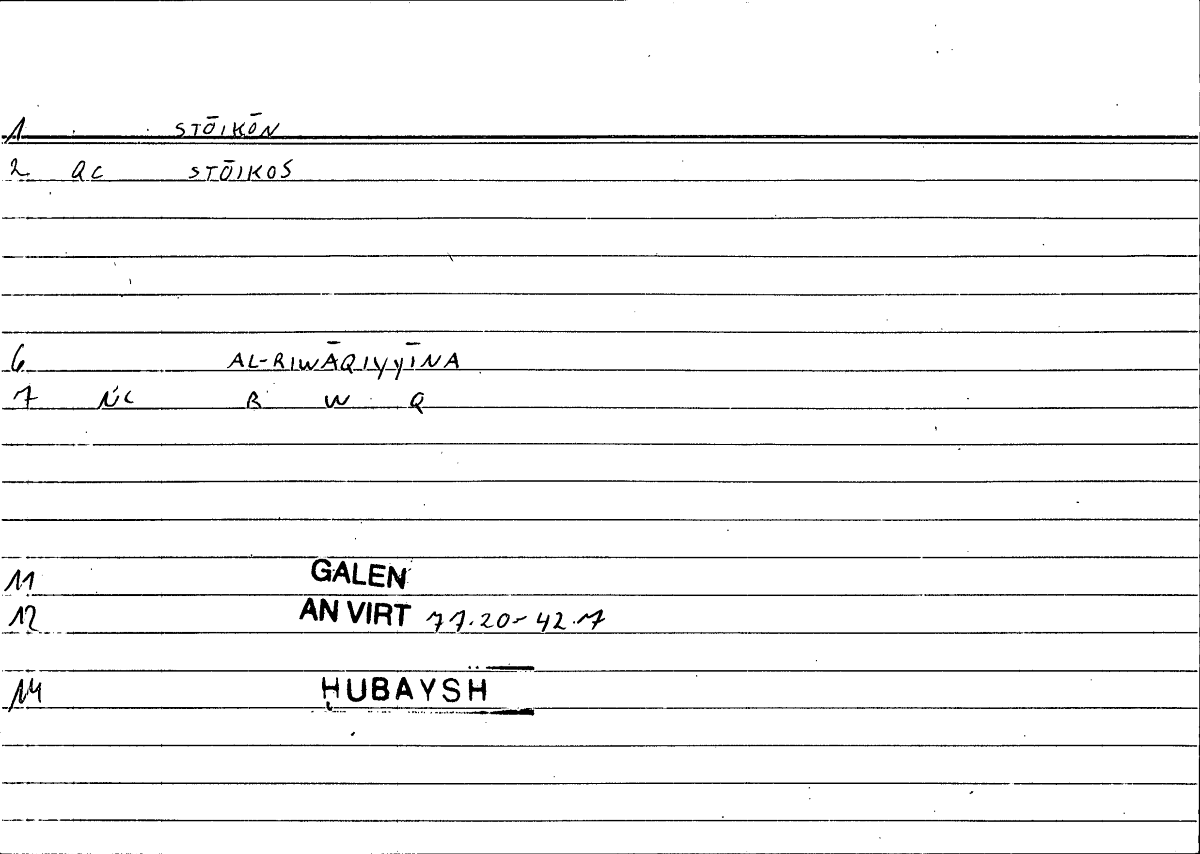 1 STŌIKŌN
2 QC STŌIKOS
6 AL-RIWĀQIYYĪNA
7 NC R W Q
11 GALEN
12 AN VIRT 77.20-42.7
14 ḤUBAYSH